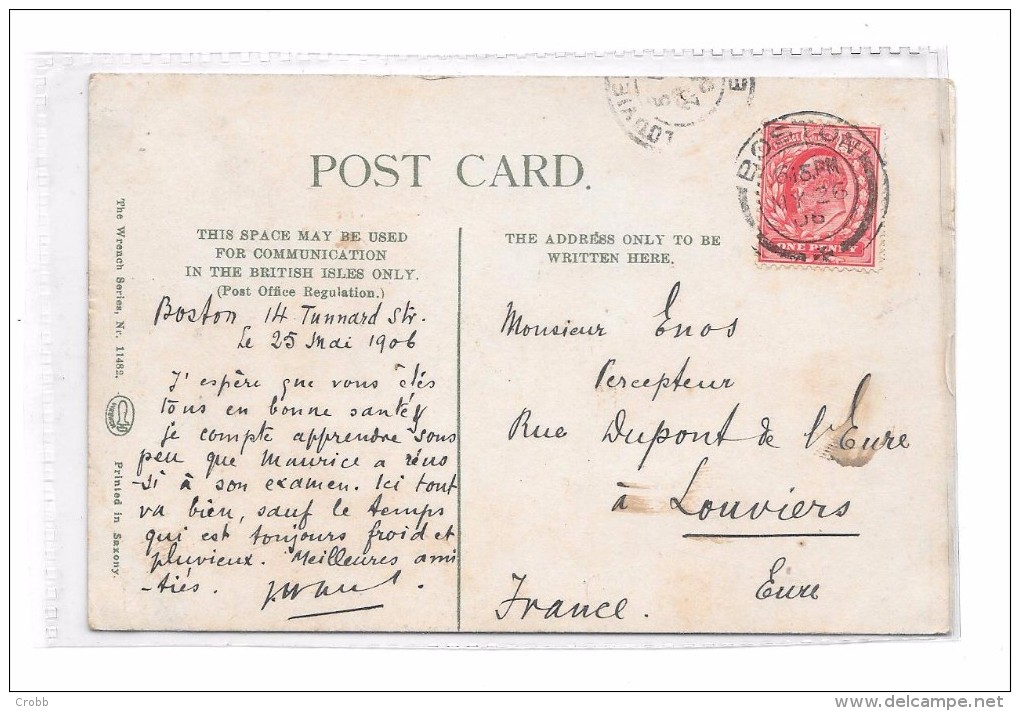 POST CARD.
THIS SPACE MAY BE USED
FOR COMMUNICATION
IN THE BRITISH ISLES ONLY.
(Post Office Regulation.)
Boston 14 Tunnard Str.
Le 25 Mai 1906
J'espère que vous êtes
tous en bonne santé &
je compte apprendre sous
peu que Maurice a réus
-si à son examen. Ici tout
va bien, sauf le temps
qui est toujours froid et
pluvieux. Meilleures ami
-tiés.
THE ADDRESS ONLY TO BE
WRITTEN HERE.
Monsieur Enos
Percepteur
Rue Dupont de l'Eure
à Louviers
Eure
France.
BOSTON
6 15 PM
MY 26
06
ONE PENNY
LOUVIE
The Wrench Series, Nr. 11482.
Printed in Saxony.
Crobb
www.delcampe.net